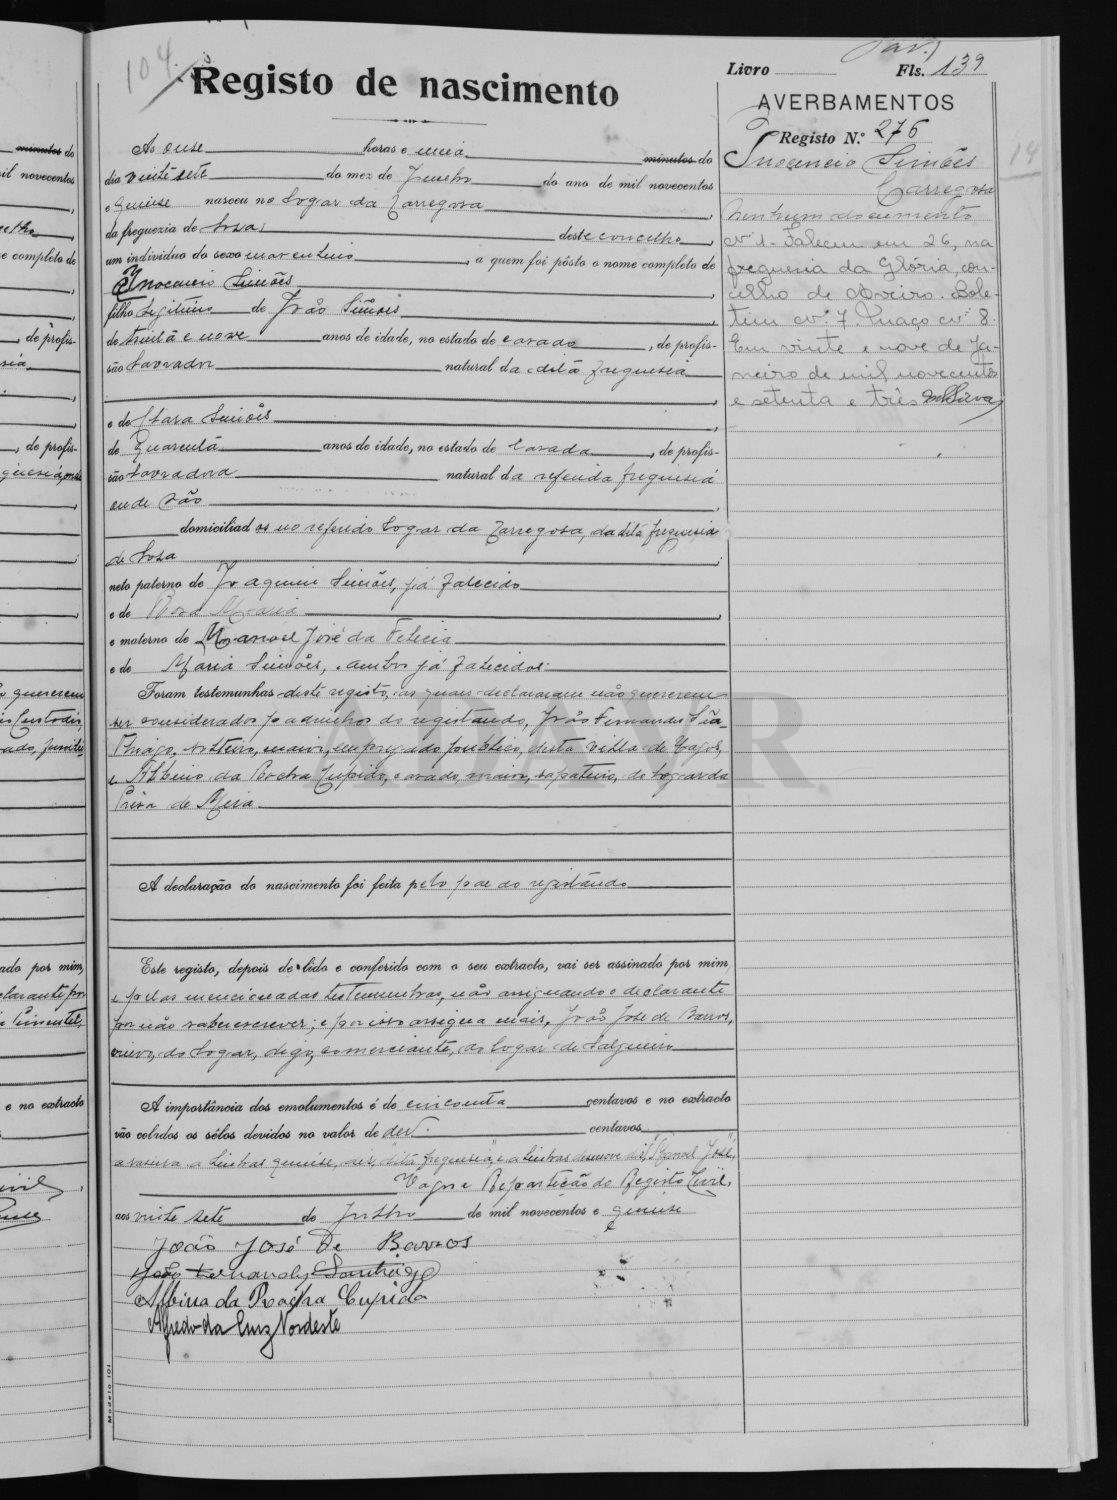 104
Registo de nascimento
Livro Fls. 139
AVERBAMENTOS
Registo N.º 276
Inocencio Simões
Carregosa
Nenhum documento
Nº 1 - Faleceu em 26, na
freguesia da Glória, con-
celho de Aveiro. Bole-
tim nº 7. Maço nº 8.
Em vinte e nove de Ja-
neiro de mil novecentos
e setenta e três
Ás onse horas e meia minutos do
dia vinte sete do mez de Junho do ano de mil novecentos
e quinse nasceu no logar da Carregosa,
da freguezia de Sosa, deste concelho,
um individuo do sexo masculino, a quem foi pôsto o nome completo de
Inocencio Simões,
filho legitimo de João Simões,
de trinta e nove anos de idade, no estado de casado, de profis-
são lavrador natural da dita freguesia,
e de Clara Simões,
de Quarenta anos de idade, no estado de casada, de profis-
são lavradora natural da referida freguesia
onde são,
domiciliados no referido logar da Carregosa, da dita freguesia
de Sosa;
neto paterno de Joaquim Simões, já falecido
e de Rosa Maria,
e materno de Manoel José da Felicia
e de Maria Simões, ambos já falecidos.
Foram testemunhas deste registo, as quaes declararam não quererem
ser considerados padrinhos do registando, João Fernandes San-
Thiago, solteiro, maior, empregado publico, desta villa de Vagos,
e Albino da Rocha Cupido, casado, maior, sapateiro, do logar da
Praia de Mira
A declaração do nascimento foi feita pelo pae do registando
Este registo, depois de lido e conferido com o seu extracto, vai ser assinado por mim
e pelas mencionadas testemunhas, não assignando o declarante
por não saber escrever; e por isso assigna mais, João José de Barros,
viuvo, do logar, digo, comerciante, do logar de Salgueiro
A importância dos emolumentos é de cincoenta centavos e no extracto
vão colados os sêlos devidos no valor de dez centavos
Vagos e Repartição do Registo Civil,
aos vinte sete de Julho de mil novecentos e quinse
João José de Barros
João Fernandes Santhiago
Albino da Rocha Cupido
Alfredo da Cruz Nordeste
Modelo 101
ADAVR